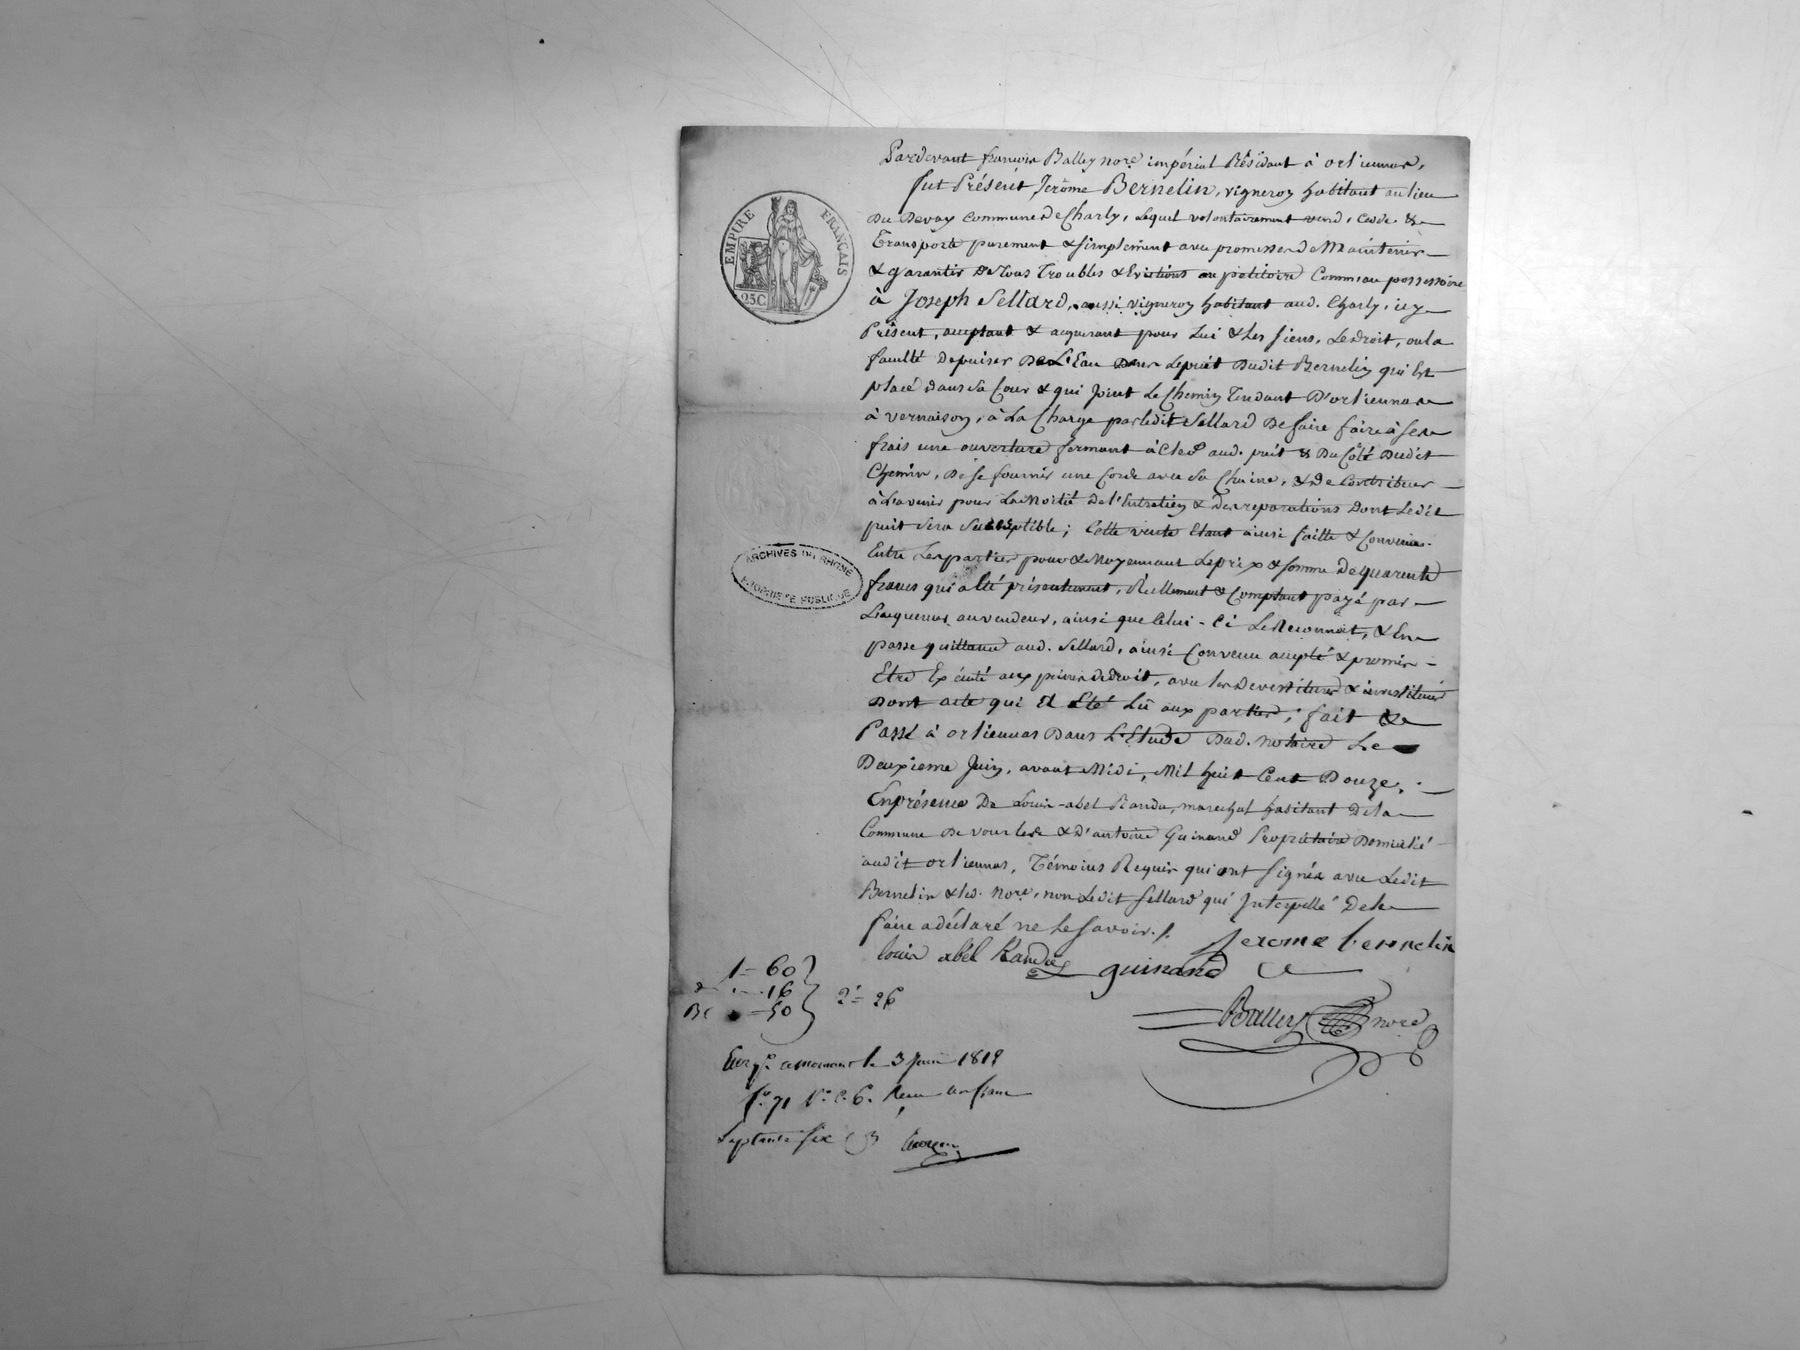 Pardevant françois Balley nore. impérial Résidant à orlienas,
fut Présent Jerôme Bernelin, vigneron habitant au lieu
Du Devay commune De Charly, Lequel volontairement vend, cede &
Transporte purement & simplement avec promesse De Maintenir
& garantir De tous Troubles & Evictions au petitoire Comme au possessoire
à Joseph Sellard, aussi vigneron habitant aud. Charly, icy
Présent, acceptant & acquerant pour Lui & Les siens, Le droit, ou la
faculté De puiser De L'Eau Dans Le puit Dudit Bernelin qui Est
placé dans sa Cour & qui Joint Le Chemin Tendant D'orlienas
à vernaison, à La Charge par Ledit Sellard De faire faire à ses
frais une ouverture fermant à Clef aud. puit & Du Côté Dudit
Chemin, De se fournir une Corde avec sa Chaine, & De Contribuer
à L'avenir pour La Moitié De l'Entretien & Des reparations Dont Ledit
puit sera Susceptible; Cette vente Etant ainsi faitte & Convenue
Entre Les parties pour & Moyennant Le prix & somme De quarente
francs qui a Eté présentement, Réellement & Comptant payé par
L'acquereur au vendeur, ainsi que Celui-Ci Le Reconnoit, & En
passe quittance aud. Sellard, ainsi Convenu accepté & promis
Etre Exécuté aux peines de droit, avec les Devestitures & investitures
Dont acte qui a Eté Lû aux parties; fait &
Passé à orlienas Dans L'Etude Dud. notaire Le
Deuxieme Juin, avant Midi, Mil huit Cent Douze,
En présence De Louis-abel Randu, marechal habitant De la
Commune De vourles & D'antoine Guinand Propriétaire Domicilié
audit orlienas, Témoins Requis qui ont signés avec Ledit
Bernelin & led. Nore. non Ledit Sellard qui Interpellé De le
faire a déclaré ne Le savoir./.
Jerome bernelin
louis abel Randu guinand
Balley nore
1 = 60
16
= 50
2f = 26
EMPIRE FRANÇAIS
25C
ARCHIVES DU RHONE
le 3 Juin 1812
fo. 71 Vo. C. 6. Reçu un franc
Septante six